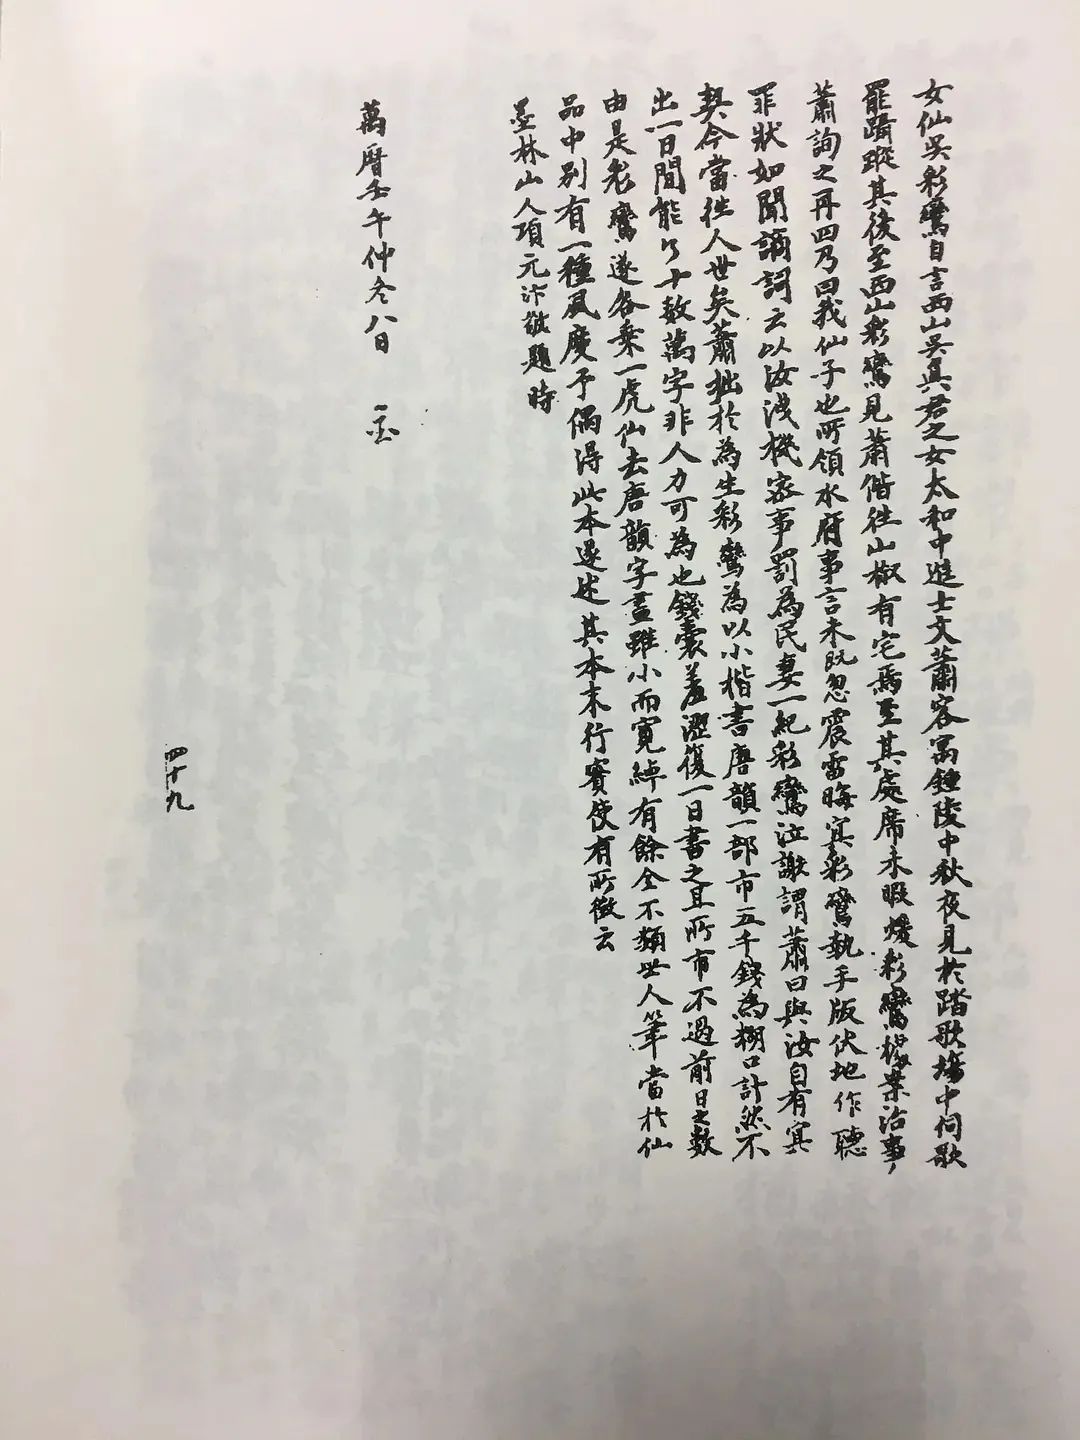 女仙吳彩鸞自言西山吳真君之女太和中進士文蕭客寓鍾陵中秋夜見於踏歌場中伺歌
罷躡蹤其後至西山彩鸞見蕭偕往山椒有宅焉至其處席未暇煖彩鸞據案治事
蕭詢之再四乃曰我仙子也所領水府事言未既忽震雷晦冥彩鸞執手版伏地作聽
罪狀如聞謫詞云以汝洩機密事罰為民妻一紀彩鸞泣謝謂蕭曰與汝自有冥
契今當往人世矣蕭拙於為生彩鸞為以小楷書唐韻一部市五千錢為糊口計然不
出一日間能了十數萬字非人力可為也錢囊羞澀復一日書之且所市不過前日之數
由是彩鸞遂各乘一虎仙去唐韻字畫雖小而寬綽有餘全不類世人筆當於仙
品中別有一種風度予偶得此本遂述其本末行賽使有所徵云
墨林山人項元汴敬題時
萬曆壬午仲冬八日
四十九